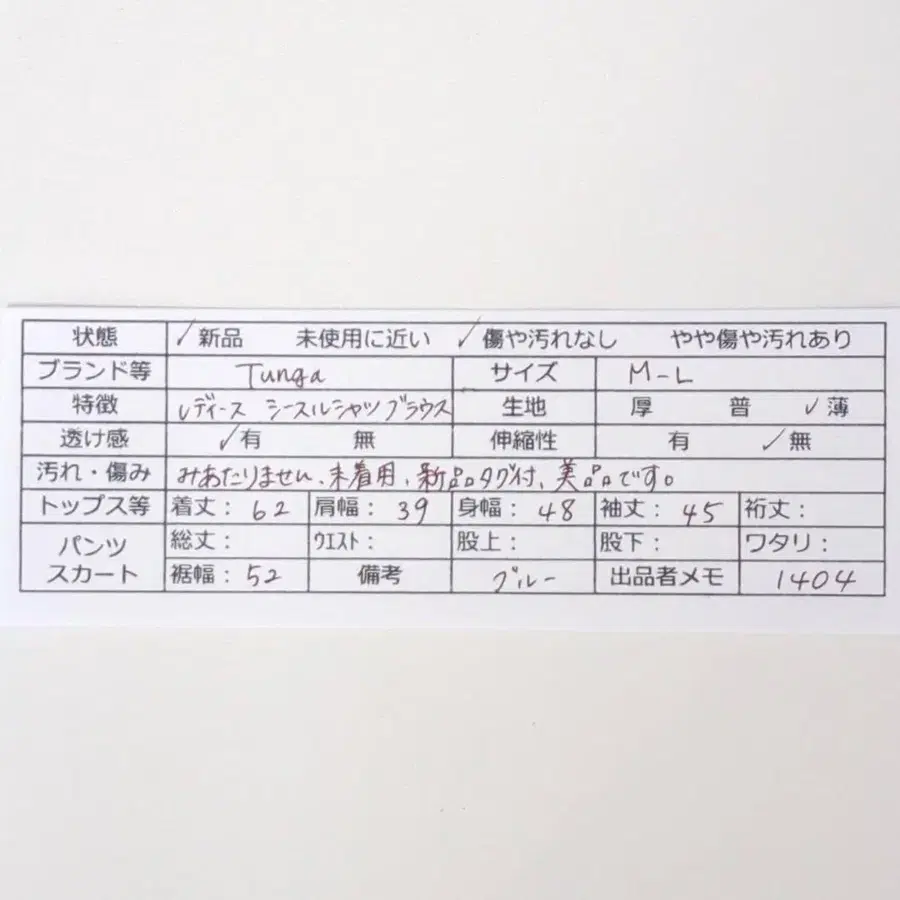 状態 ✓新品 未使用に近い ✓傷や汚れなし やや傷や汚れあり
ブランド等 Tunga サイズ M-L
特徴 レディース シースルシャツブラウス 生地 厚 普 ✓薄
透け感 ✓有 無 伸縮性 有 ✓無
汚れ・傷み みあたりません、未着用、新品タグ付、美品です。
トップス等 着丈: 62 肩幅: 39 身幅: 48 袖丈: 45 裄丈:
パンツ スカート 総丈: ウエスト: 股上: 股下: ワタリ:
裾幅: 52 備考 ブルー 出品者メモ 1404